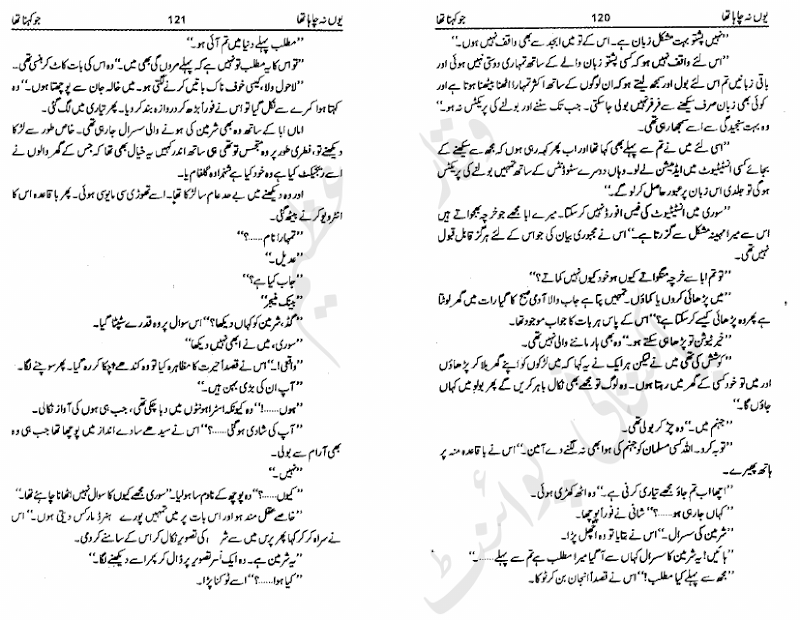 یوں نہ چاہا تھا 120 جو کہنا تھا
”نہیں پشتو بہت مشکل زبان ہے۔ اس کے تو میں ابجد سے بھی واقف نہیں ہوں۔“
”اس لئے واقف نہیں ہو کہ کسی پشتو زبان والے کے ساتھ تمہاری دوستی نہیں ہوئی اور
باقی زبانیں تم اس لئے بول اور سمجھ لیتے ہو کہ ان لوگوں کے ساتھ اکثر تمہارا اٹھنا بیٹھنا ہوتا ہے اور
کوئی بھی زبان صرف سیکھنے سے فرفر نہیں بولی جا سکتی۔ جب تک سننے اور بولنے کی پریکٹس نہ ہو۔“
وہ بہت سنجیدگی سے اسے سمجھا رہی تھی۔
”اسی لئے میں نے تم سے پہلے بھی کہا تھا اور اب پھر کہہ رہی ہوں کہ مجھ سے سیکھنے کے
بجائے کسی انسٹیٹیوٹ میں ایڈمیشن لے لو۔ وہاں دوسرے سٹوڈنٹس کے ساتھ تمہیں بولنے کی پریکٹس
ہو گی تو جلدی اس زبان پر عبور حاصل کر لو گے۔“
”سوری میں انسٹیٹیوٹ کی فیس افورڈ نہیں کر سکتا۔ میرے ابا مجھے جو خرچہ بھجواتے ہیں
اس سے میرا مہینہ مشکل سے گزرتا ہے۔“ اس نے مجبوری بیان کی جو اس کے لئے ہرگز قابل قبول
نہیں تھی۔
”تو تم ابا سے خرچہ منگواتے کیوں ہو خود کیوں نہیں کماتے؟“
”میں پڑھائی کروں یا کماؤں۔ تمہیں پتا ہے جاب والا آدمی صبح کا گیا رات میں گھر لوٹتا
ہے پھر وہ پڑھائی کیسے کر سکتا ہے؟“ اس کے پاس ہر بات کا جواب موجود تھا۔
”خیر ٹیوشن تو پڑھا ہی سکتے ہو۔“ وہ بھی ہار ماننے والی نہیں تھی۔
”کوشش کی تھی میں نے لیکن ہر ایک نے یہ کہا کہ میں لڑکوں کو اپنے گھر بلا کر پڑھاؤں
اور میں تو خود کسی کے گھر میں رہتا ہوں۔ وہ لوگ تو مجھے بھی نکال باہر کریں گے پھر بولو میں کہاں
جاؤں گا۔“
”جہنم میں۔“ وہ چڑ کر بولی تھی۔
”توبہ کرو۔ اللہ کسی مسلمان کو جہنم کی ہوا بھی نہ لگنے دے آمین۔“ اس نے باقاعدہ منہ پر
ہاتھ پھیرے۔
”اچھا اب تم جاؤ مجھے تیاری کرنی ہے۔“ وہ اٹھ کھڑی ہوئی۔
”کہاں جا رہی ہو......؟“ شانی نے فوراً پوچھا۔
”شرمین کی سسرال۔“ اس نے بتایا تو وہ اچھل پڑا۔
”ہائیں! یہ شرمین کا سسرال کہاں سے آ گیا میرا مطلب ہے تم سے پہلے......۔“
”مجھ سے پہلے کیا مطلب!“ اس نے قصداً انجان بن کر ٹوکا۔
یوں نہ چاہا تھا 121 جو کہنا تھا
”مطلب پہلے دنیا میں تم آئی ہو۔“
”تو اس کا یہ مطلب تو نہیں ہے کہ پہلے مروں گی بھی میں۔“ وہ اس کی بات کاٹ کر ہنسی تھی۔
”لاحول ولا، کیسی خوف ناک باتیں کرنے لگتی ہو۔ میں خالہ جان سے پوچھتا ہوں۔“ وہ
کہتا ہوا کمرے سے نکل گیا تو اس نے فوراً بڑھ کر دروازہ بند کر دیا۔ پھر تیاری میں لگ گئی۔
اماں ابا کے ساتھ وہ بھی شرمین کی ہونے والی سسرال جا رہی تھی۔ خاص طور سے لڑکا
دیکھنے تو، فطری طور پر وہ متجسس تو تھی ہی ساتھ اندر کہیں یہ خیال بھی تھا کہ جس کے گھر والوں نے
اسے ریجیکٹ کیا ہے وہ خود کیا ہے شہزادہ گلفام یا۔
اور وہ دیکھنے میں بے حد عام سا لڑکا تھا۔ اسے تھوڑی سی مایوسی ہوئی۔ پھر باقاعدہ اس کا
انٹرویو کرنے بیٹھ گئی۔
”تمہارا نام......؟“
”عدیل۔“
”جاب کیا ہے؟“
”بینک منیجر“
”گڈ، شرمین کو کہاں دیکھا؟“ اس سوال پر وہ قدرے سٹپٹا گیا۔
”سوری، میں نے ابھی نہیں دیکھا“
”واقعی!۔“ اس نے قصداً حیرت کا مظاہرہ کیا تو وہ کندھے اچکا کر رہ گیا۔ پھر سوچنے لگا۔
”آپ ان کی بڑی بہن ہیں۔“
”ہوں......!“ وہ کیونکہ اسٹرا ہونٹوں میں دبا چکی تھی، جب ہی ہوں کی آواز نکالی۔
”آپ کی شادی ہو گئی......؟“ اس نے سیدھے سادے انداز میں پوچھا تھا جب ہی وہ
بھی آرام سے بولی۔
”نہیں۔“
”کیوں......؟“ وہ پوچھ کے نادم سا ہو لیا۔ ”سوری مجھے کیوں کا سوال نہیں اٹھانا چاہئے تھا۔“
”خاصے عقل مند ہو اور اس بات پر میں تمہیں پورے ہنڈرڈ مارکس دیتی ہوں۔“ اس
نے سراہ کر کہا پھر پرس میں سے شر کی تصویر نکال کر اس کے سامنے کر دی۔
”یہ شرمین ہے۔“ وہ ایک نظر تصویر پر ڈال کر پھر اسے دیکھنے لگا۔
”کیا ہوا......؟“ اسے ٹوکنا پڑا۔